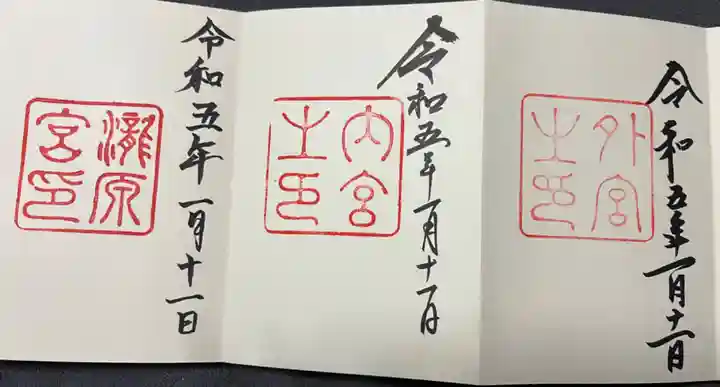 令和五年一月十一日
外宮之印
令和五年一月十一日
内宮之印
令和五年一月十一日
瀧原宮印